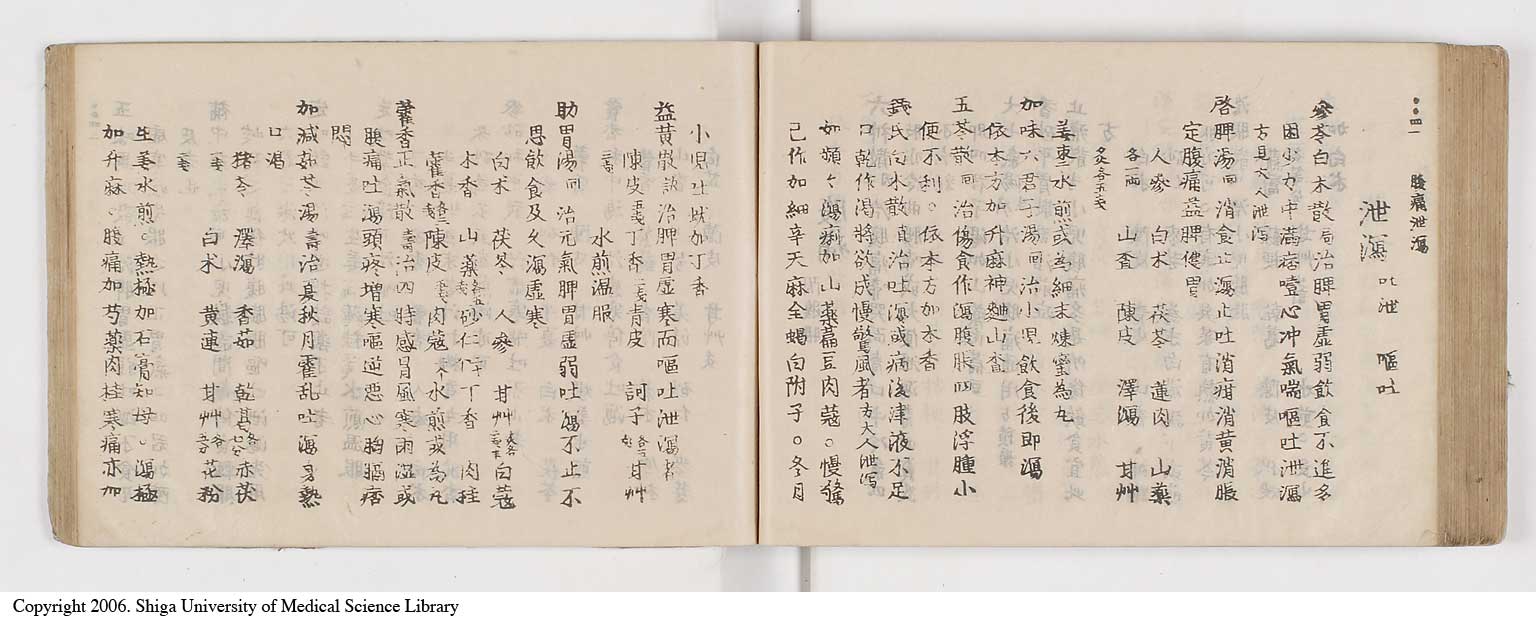 腹痛泄瀉
泄瀉 吐泄 嘔吐
參苓白朮散局治脾胃虛弱飲食不進多
困少力中滿痞噎心冲氣喘嘔吐泄瀉
方見大人泄瀉
啓脾湯回消食止瀉止吐消疳消黃消脹
定腹痛益脾健胃
人參 白朮 茯苓 蓮肉 山藥
各一兩 山査 陳皮 澤瀉 甘艸
炙各五戔
姜棗水煎或為細末煉蜜為丸
加味六君子湯回治小児飲食後即瀉
依本方加升麻神麯山査
五苓散回治傷食作瀉腹脹四肢浮腫小
便不利。依本方加木香
錢氏白朮散直治吐瀉或病後津液不足
口乾作渇將欲成慢驚風者方大人泄瀉
如頻々瀉痢加山藥扁豆肉蔻。慢驚
已作加細辛天麻全蝎白附子。冬月
小児吐蚘加丁香
益黃散訣治脾胃虛寒而嘔吐泄瀉者
陳皮 丁香 青皮 訶子 甘艸
水煎温服
助胃湯回治元氣脾胃虛弱吐瀉不止不
思飲食及久瀉虛寒
白朮 茯苓 人參 甘艸 白蔻
木香 山藥 砂仁 丁香 肉桂
藿香 陳皮 肉蔻 水煎或為丸
藿香正氣散壽治四時感冒風寒雨湿或
腹痛吐瀉頭疼增寒嘔逆惡心胸膈痞
悶
加減茹苓湯壽治夏秋月霍乱吐瀉身熱
口渴
猪苓 澤瀉 香茹 乾葛 赤茯
白朮 黄連 甘艸 花粉
生姜水煎。熱極加石膏知母。瀉極
加升麻。腹痛加芍藥肉桂寒痛亦加
Copyright 2006. Shiga University of Medical Science Library